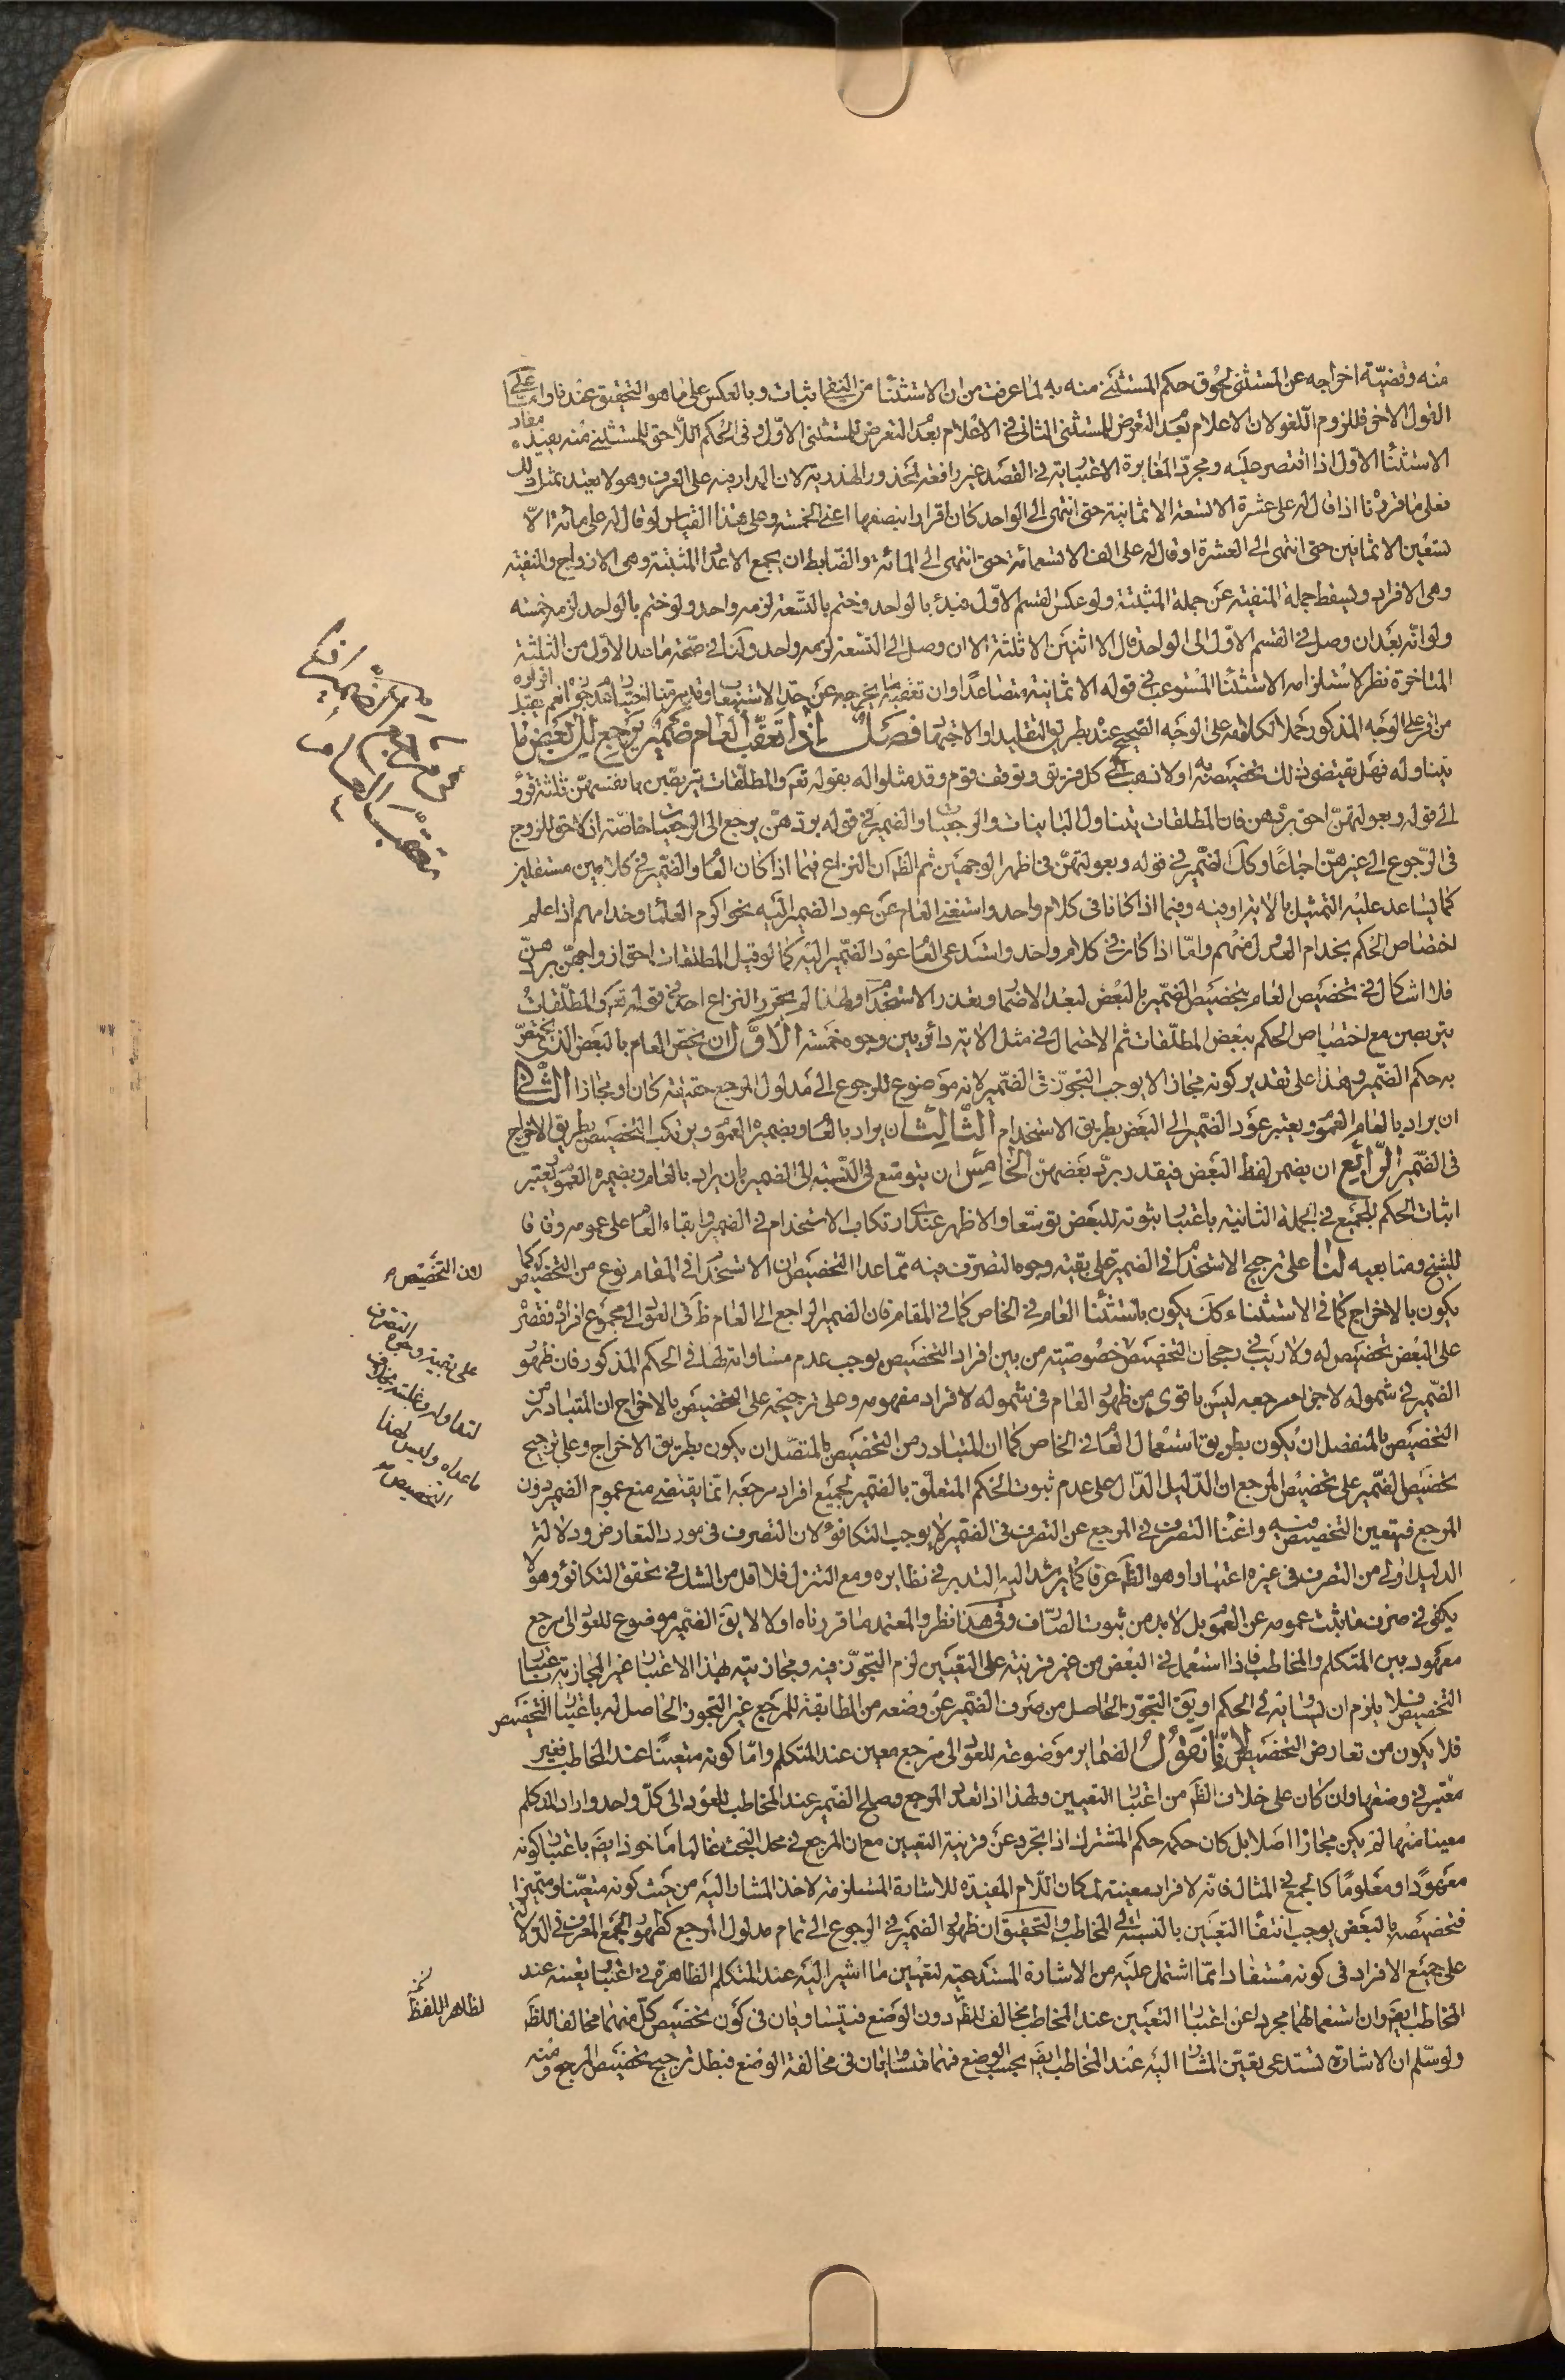 منه وقضيّة اخراجه عن المستثنى لحوق حكم المستثنى منه به لما عرفت من ان الاستثناء من النفى اثبات وبالعكس على ما هو التحقيق عندنا واما على
القول الاخر فللزوم اللغو لان الاعلام بعد التعرض للمستثنى الثانى فى الاعلام بعد التعرض للمستثنى الاوّل وفى الحكم اللاحق للمستثنى منه يفيده مفاد
الاستثناء الاول اذا اقتصر عليه ومجرّد المغايرة الاعتبارية فى القصد غير رافعة لمحذور الهذرية لان المدار فيه على العرف وهو لا يعتد بمثل ذلك
فعلى ما قررنا اذا قال له على عشرة الا تسعة الا ثمانية حتى انتهى الى الواحد كان اقرارا بنصفها اعنى الخمسة وعلى هذا القياس لو قال له على مائة الّا
تسعين الا ثمانين حتى انتهى الى العشرة او قال له على الف الا تسعمائة حتى انتهى الى المائة والضابط ان يجمع الاعداد المثبتة وهى الازواج والمنفية
وهى الافراد ويسقط جملة المنفية عن جملة المثبتة ولو عكس القسم الاوّل فبدء بالواحد وختم بالتسعة لزمه واحد ولو ختم بالواحد لزمه خمسة
ولو انّه بعد ان وصل فى القسم الاوّل الى الواحد قال الا اثنين الا ثلثة الا ان وصل الى التسعة لزمه واحد ولنا فى صحّة ما عدا الاول من الثلثة
المتاخرة نظر لاستلزامه الاستثناء المستوعب فى قوله الا ثمانية متصاعدًا وان تعقبه ما يخرجه عن حدّ الاستيعاب وقد مرّ منا اختيار عدم جوازه نعم يقبل اقراره
من اقر على الوجه المذكور حملا لكلامه على الوجه الصّحيح عنده بطريق التقليد او الاجتهاد فصل اذا تعقّب العام ضمير يرجع الى بعض ما
يتناوله فهل يقتضى ذلك تخصيصه به اولا ذهب الى كل فريق وتوقف قوم وقد مثلوا له بقوله تع والمطلّقات يتربصن بانفسهنّ ثلثة قروء
الى قوله وبعولتهنّ احق بردّهن فان المطلقات يتناول البائنات والرجعيات والضمير فى قوله بردّهنّ يرجع الى الرجعيات خاصّة اذ لا حق للزوج
فى الرّجوع الى غيرهنّ اجماعًا وكذا الضمير فى قوله وبعولتهنّ فى اظهر الوجهين ثم الظ ان النزاع فيما اذا كان العام والضمير فى كلامين مستقلين
كما يساعد عليه التمثيل بالاية او فيه وفيما اذا كانا فى كلام واحد واستغنى العام عن عود الضمير اليه نحو اكرم العلماء وخدامهم اذا علم
اختصاص الحكم بخدام العدول منهم وامّا اذا كان فى كلام واحد واستدعى العام عود الضّمير اليه كما لو قيل المطلقات احق ازواجهنّ بردّهنّ
فلا اشكال فى تخصيص العام بتخصيص الضّمير بالبعض لبعد الاضمار وبعد الاستخدام ولهذا لم يحرّر النزاع احد فى قوله تع والمطلّقات
يتربصن مع اختصاص الحكم ببعض المطلّقات ثم الاحتمال فى مثل الاية دائر بين وجوه خمسة الاوّل ان يخصّ العام بالبعض الذى يختصّ
به حكم الضّمير وهذا على تقدير كونه مجازا لا يوجب التجوّز فى الضّمير لانه موضوع للرجوع الى مدلول المرجع حقيقة كان او مجازا الثّانى
ان يراد بالعام العموم ويعتبر عود الضّمير الى البعض بطريق الاستخدام الثّالث ان يراد بالعام وبضميره العموم ويرتكب التخصيص بطريق الاخراج
فى الضّمير الرّابع ان يضمر لفظ البعض فيقدر بردّ بعضهنّ الخامس ان يتوسّع فى النّسبة الى الضمير بان يراد بالعام وبضميره العموم ويعتبر
اثبات الحكم للجميع فى الجملة الثانية باعتبار ثبوته للبعض توسّعا والاظهر عندى ارتكاب الاستخدام فى الضمير وابقاء العام على عمومه وفاقا
للشيخ ومتابعيه لنا على ترجيح الاستخدام فى الضمير على بقيّة وجوه التصرّف فيه ممّا عدا التخصيص ان الاستخدام فى المقام نوع من التخصيص اذ كما
يكون بالاخراج كما فى الاستثناء كذلك يكون باستثناء العام فى الخاص كما فى المقام فان الضمير الراجع الى العام ظ فى العود الى مجموع افراده فقصره
على البعض تخصيص له ولا ريب فى رجحان التخصيص خصوصيّة من بين افراد التخصيص يوجب عدم مساواته لها فى الحكم المذكور فان ظهور
الضّمير فى شموله لاجزاء مرجعه ليس باقوى من ظهور العام فى شموله لافراد مفهومه وعلى ترجيحه على التخصيص بالاخراج ان المتبادر من
التخصيص بالمنفصل ان يكون بطريق استعمال العام فى الخاص كما ان المتبادر من التخصيص بالمتصّل ان يكون بطريق الاخراج وعلى ترجيح
تخصيص الضّمير على تخصيص المرجع ان الدّليل الدّال على عدم ثبوت الحكم المتعلّق بالضّمير لجميع افراد مرجعه انّما يقتضى منع عموم الضمير دون
المرجع فيتعين التخصيص فيه واغناء التصرف فى المرجع عن التصرف فى الضّمير لا يوجب التكافؤ لان التصرف فى مورد التعارض ودلالة
الدليل اولى من التصرف فى غيره اعتبارا وهو الظ عرفا كما يرشد اليه التدبر فى نظايره ومع التنزل فلا اقل من الشك فى تحقق التكافؤ وهو لا
يكفى فى صرف ما ثبت عمومه عن العموم بل لا بد من ثبوت الصّارف وفى هذا نظر والمعتمد ما قررناه اولا لا يق الضّمير موضوع للعود الى مرجع
معهود بين المتكلم والمخاطب فاذا استعمل فى البعض من غير قرينة على التعيين لزم التجوّز فيه ومجازيته بهذا الاعتبار غير المجازية باعتبار
التخصيص فلا يلزم ان يساويه فى الحكم او يق التجوّز الحاصل من صرف الضّمير عن وضعه من المطابقة للمرجع غير التجوز الحاصل له باعتبار التخصيص
فلا يكون من تعارض التخصيصين لانا نقول الضماير موضوعة للعود الى مرجع معين عند المتكلم وامّا كونه متعينًا عند المخاطب فغير
معتبر فى وضعها وان كان على خلاف الظ من اعتبار التعيين ولهذا اذا تعدد المرجع وصلح الضّمير عند المخاطب للعود الى كلّ واحد واراد المتكلم
معينا منها لم يكن مجازا اصلا بل كان حكمه حكم المشترك اذا تجرد عن قرينة التعيين مع ان المرجع فى محل البحث غالبا ماخوذ ايض باعتبار كونه
معهودًا ومعلومًا كالجمع فى المثال فانّه لافراد معينة لمكان اللّام المفيدة للاشارة المستلزمة لاخذ المشار اليه من حيث كونه متعيّنا ومتميزا
فتخصيصه بالبعض يوجب انتفاء التعيين بالنسبة الى المخاطب والتحقيق ان ظهور الضمير فى الرجوع الى تمام مدلول المرجع كظهور الجمع المعرف فى الدلالة
على جميع الافراد فى كونه مستفادا ممّا اشتمل عليه من الاشارة المستدعية لتعيين ما اشير اليه عند المتكلم الظاهرة فى اعتبار تعينه عند
المخاطب ايض وان استعمالهما مجردا عن اعتبار التعيين عند المخاطب مخالف للظ دون الوضع فيتساويان فى كون تخصيص كلّ منهما مخالفا للظ
ولو سلم ان الاشارة تستدعى تعيّن المشار اليه عند المخاطب ايض بحسب الوضع فهما متساويان فى مخالفة الوضع فبطل ترجيح تخصيص المرجع ومنه
لان التخصيص
على بقية وجوه التصرف
لتعاوله وغلبته بخلاف
ما عداه وليس لهذا
التخصيص
لظاهر اللفظ